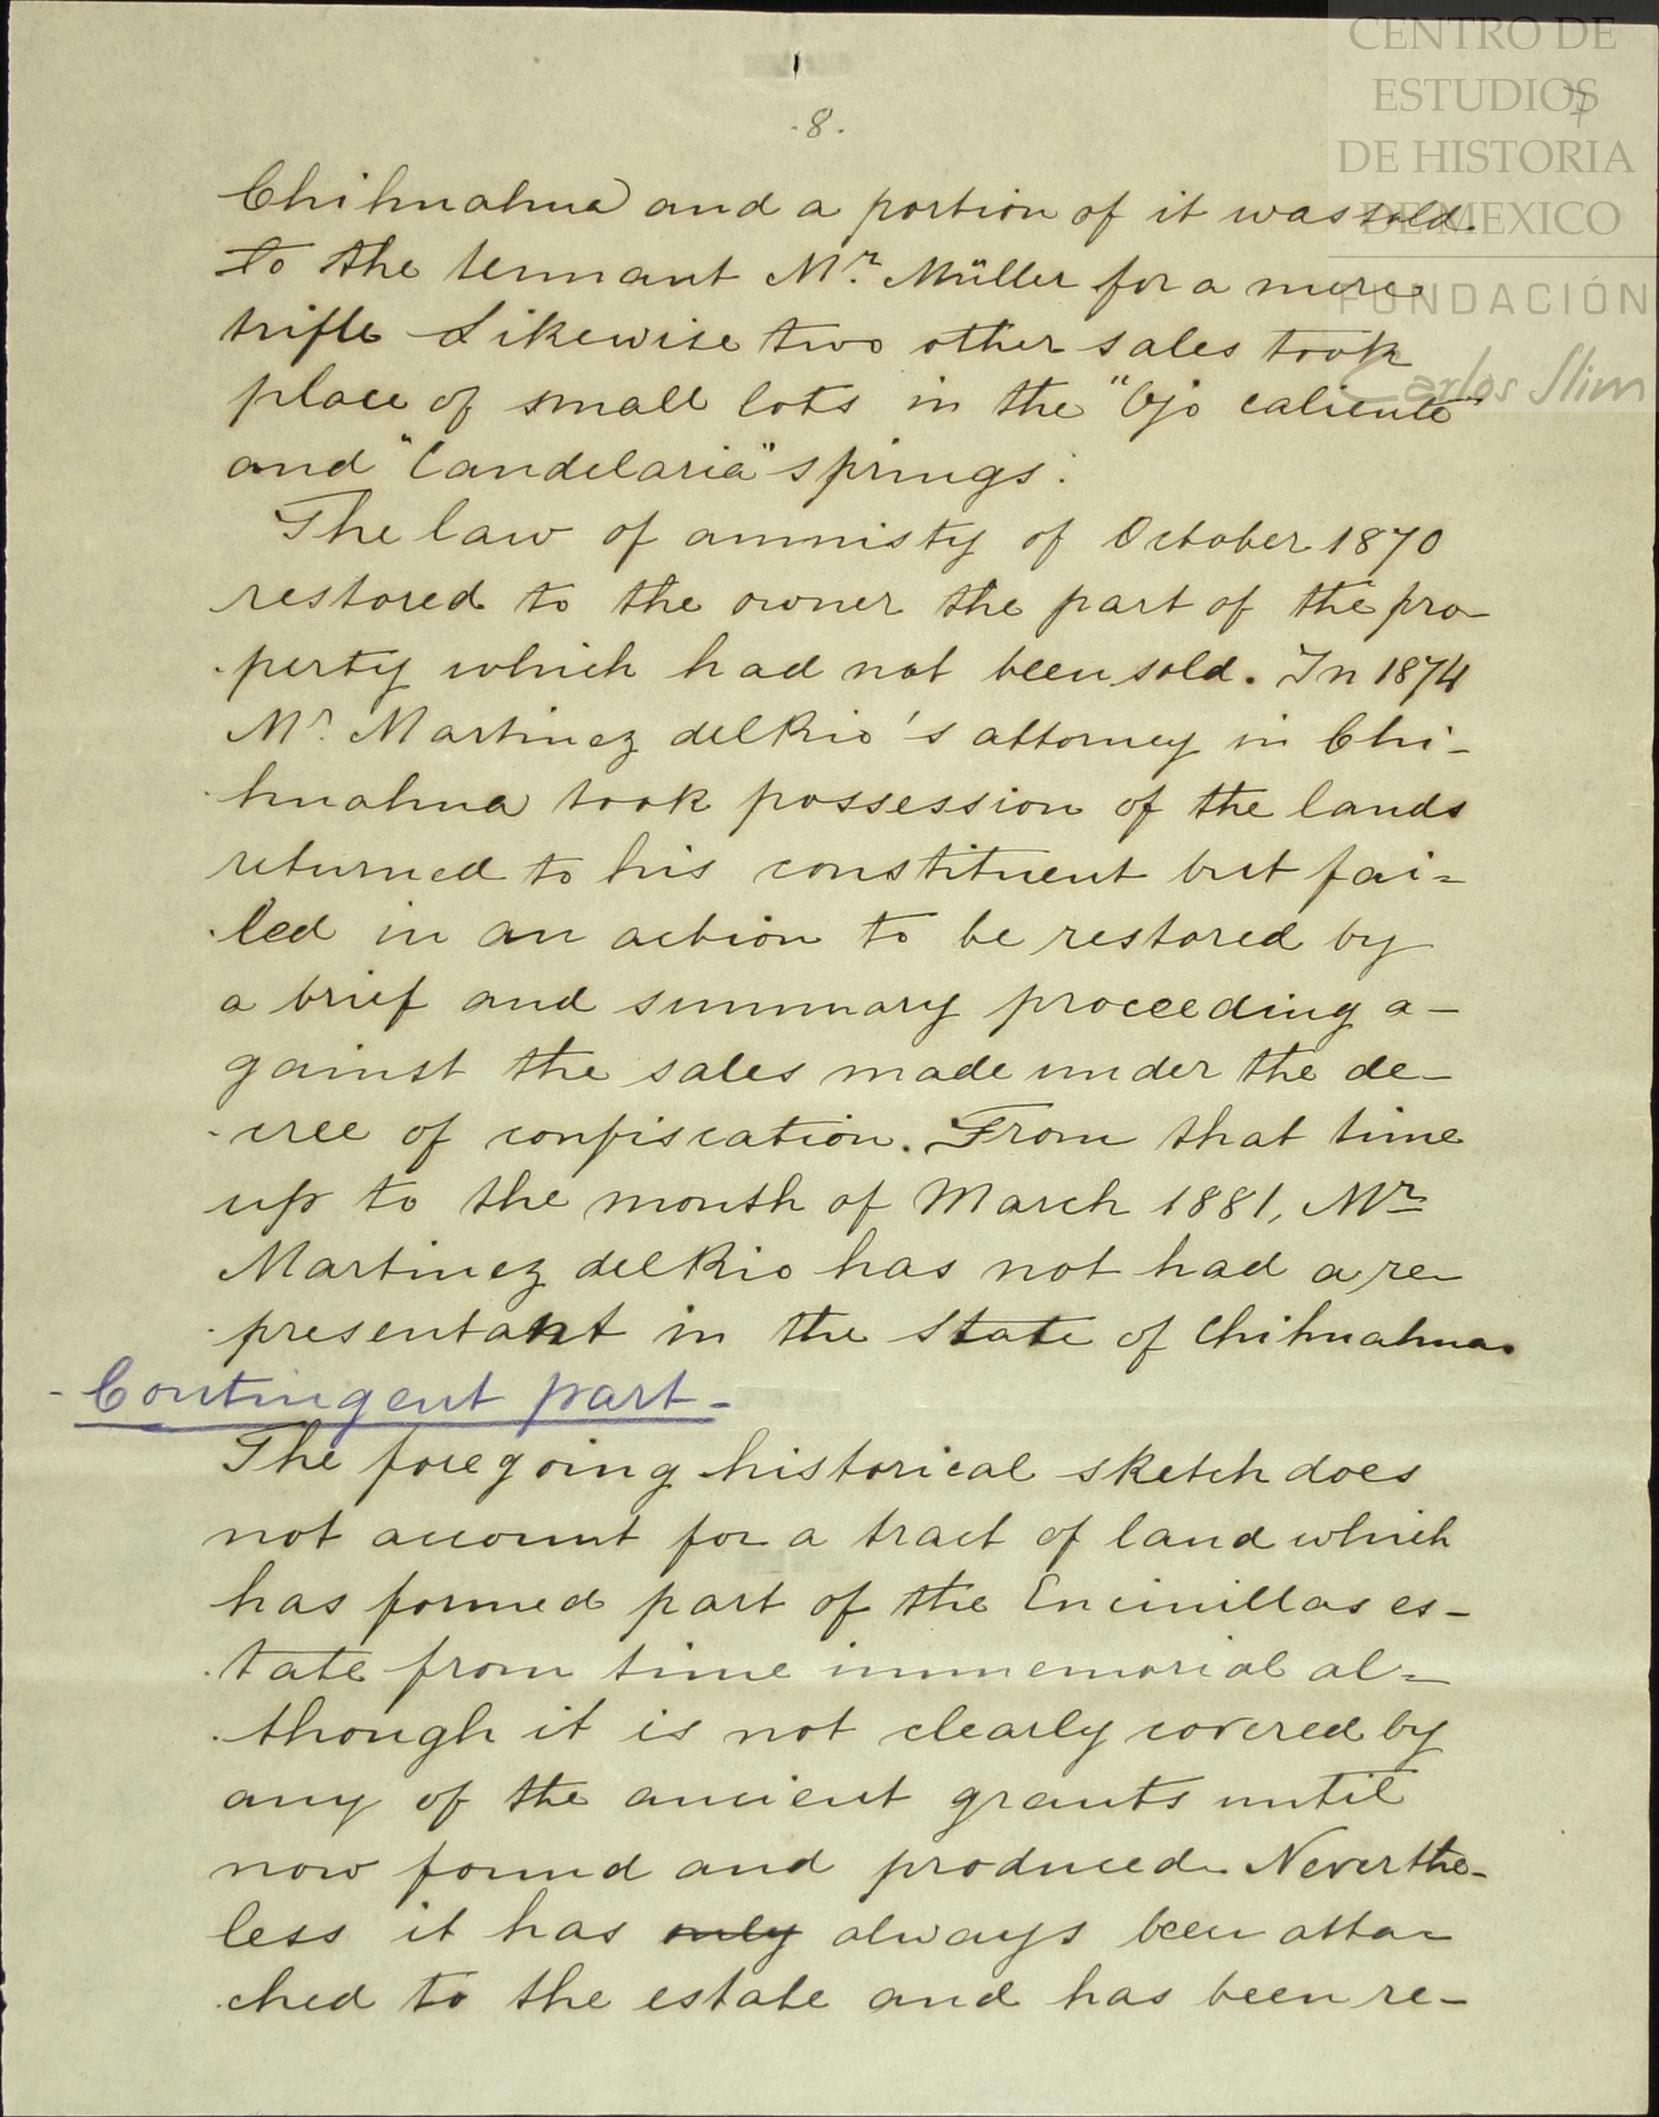 CENTRO DE
ESTUDIOS
DE HISTORIA
DE MEXICO
FUNDACIÓN
Carlos Slim
7
.8.
Chihuahua and a portion of it was sold.
to the tennant Mr. Müller for a mere
trifle Likewise two other sales took
place of small lots in the "Ojo caliente"
and "Candelaria" springs.
The law of amnisty of October 1870
restored to the owner the part of the pro-
-perty which had not been sold. In 1874
Mr. Martinez del Rio's attorney in Chi-
-huahua took possession of the lands
returned to his constituent but fai=
-led in an action to be restored by
a brief and summary proceeding a-
gainst the sales made under the de-
-cree of confiscation. From that time
up to the month of March 1881, Mr
Martinez del Rio has not had a re-
-presentant in the State of Chihuahua.
- Contingent part -
The foregoing historical sketch does
not account for a tract of land which
has formed part of the Encinillas es-
-tate from time immemorial al=
-though it is not clearly covered by
any of the ancient grants until
now found and produced. Neverthe-
less it has only always been atta-
-ched to the estate and has been re-